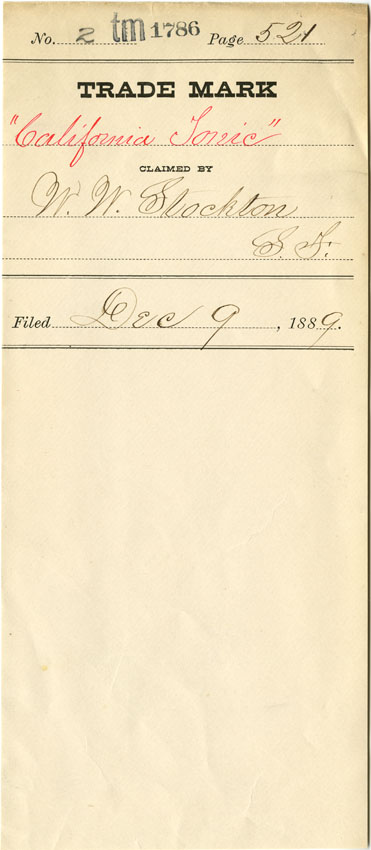 No. 2 tm 1786 Page 521
TRADE MARK
"California Tonic"
CLAIMED BY
W. W. Stockton
S. F.
Filed Dec 9, 1889.